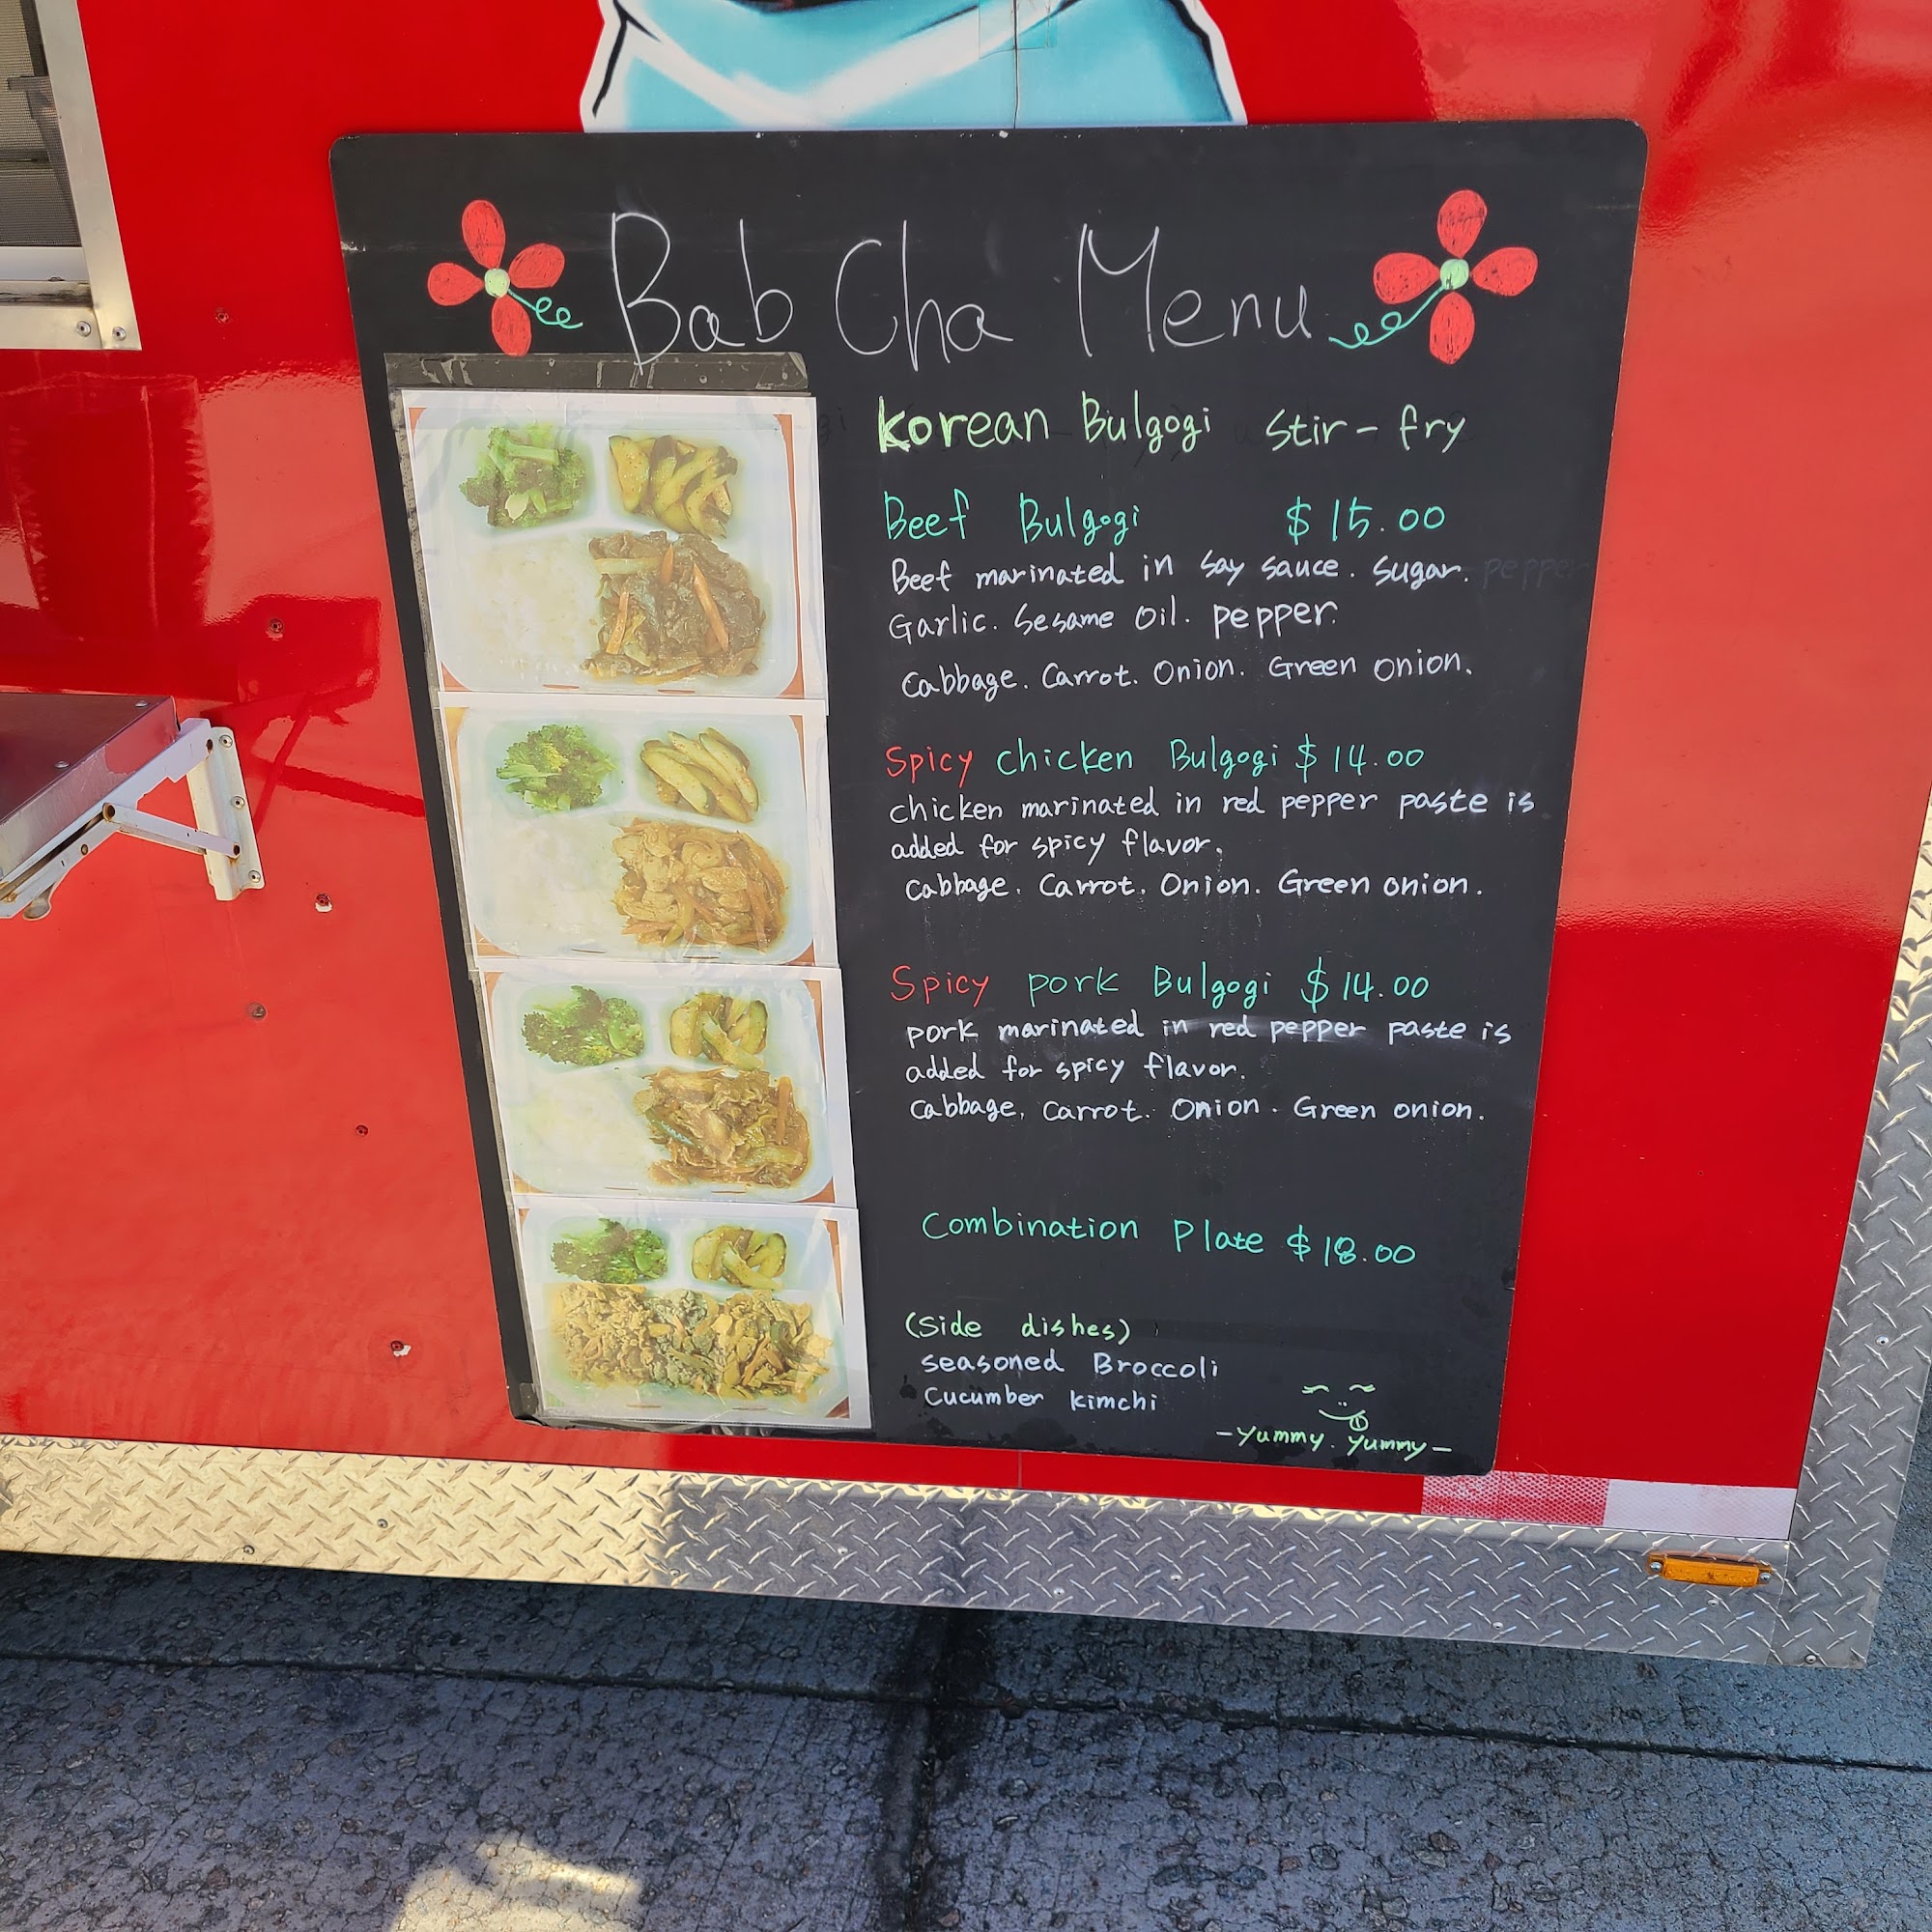 Bab Cha Menu
Korean Bulgogi Stir-fry
Beef Bulgogi $15.00
Beef marinated in Soy sauce. Sugar. pepper
Garlic. Sesame Oil. pepper.
Cabbage. Carrot. Onion. Green onion.
Spicy chicken Bulgogi $14.00
chicken marinated in red pepper paste is
added for spicy flavor.
Cabbage. Carrot. Onion. Green onion.
Spicy pork Bulgogi $14.00
pork marinated in red pepper paste is
added for spicy flavor.
Cabbage. Carrot. Onion. Green onion.
Combination Plate $18.00
(Side dishes)
Seasoned Broccoli
Cucumber kimchi
-Yummy. Yummy-